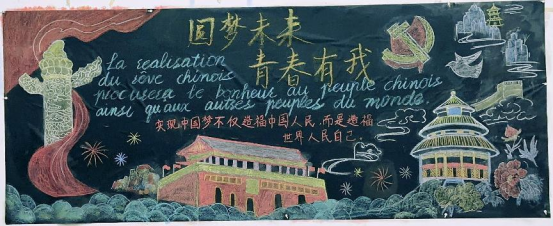 圆梦未来
青春有我
La realisation
du rêve chinois
procusera le bonheur au peuple chinois
ainsi qu'aux autres peuples du monde.
实现中国梦不仅造福中国人民,而是造福
世界人民自己